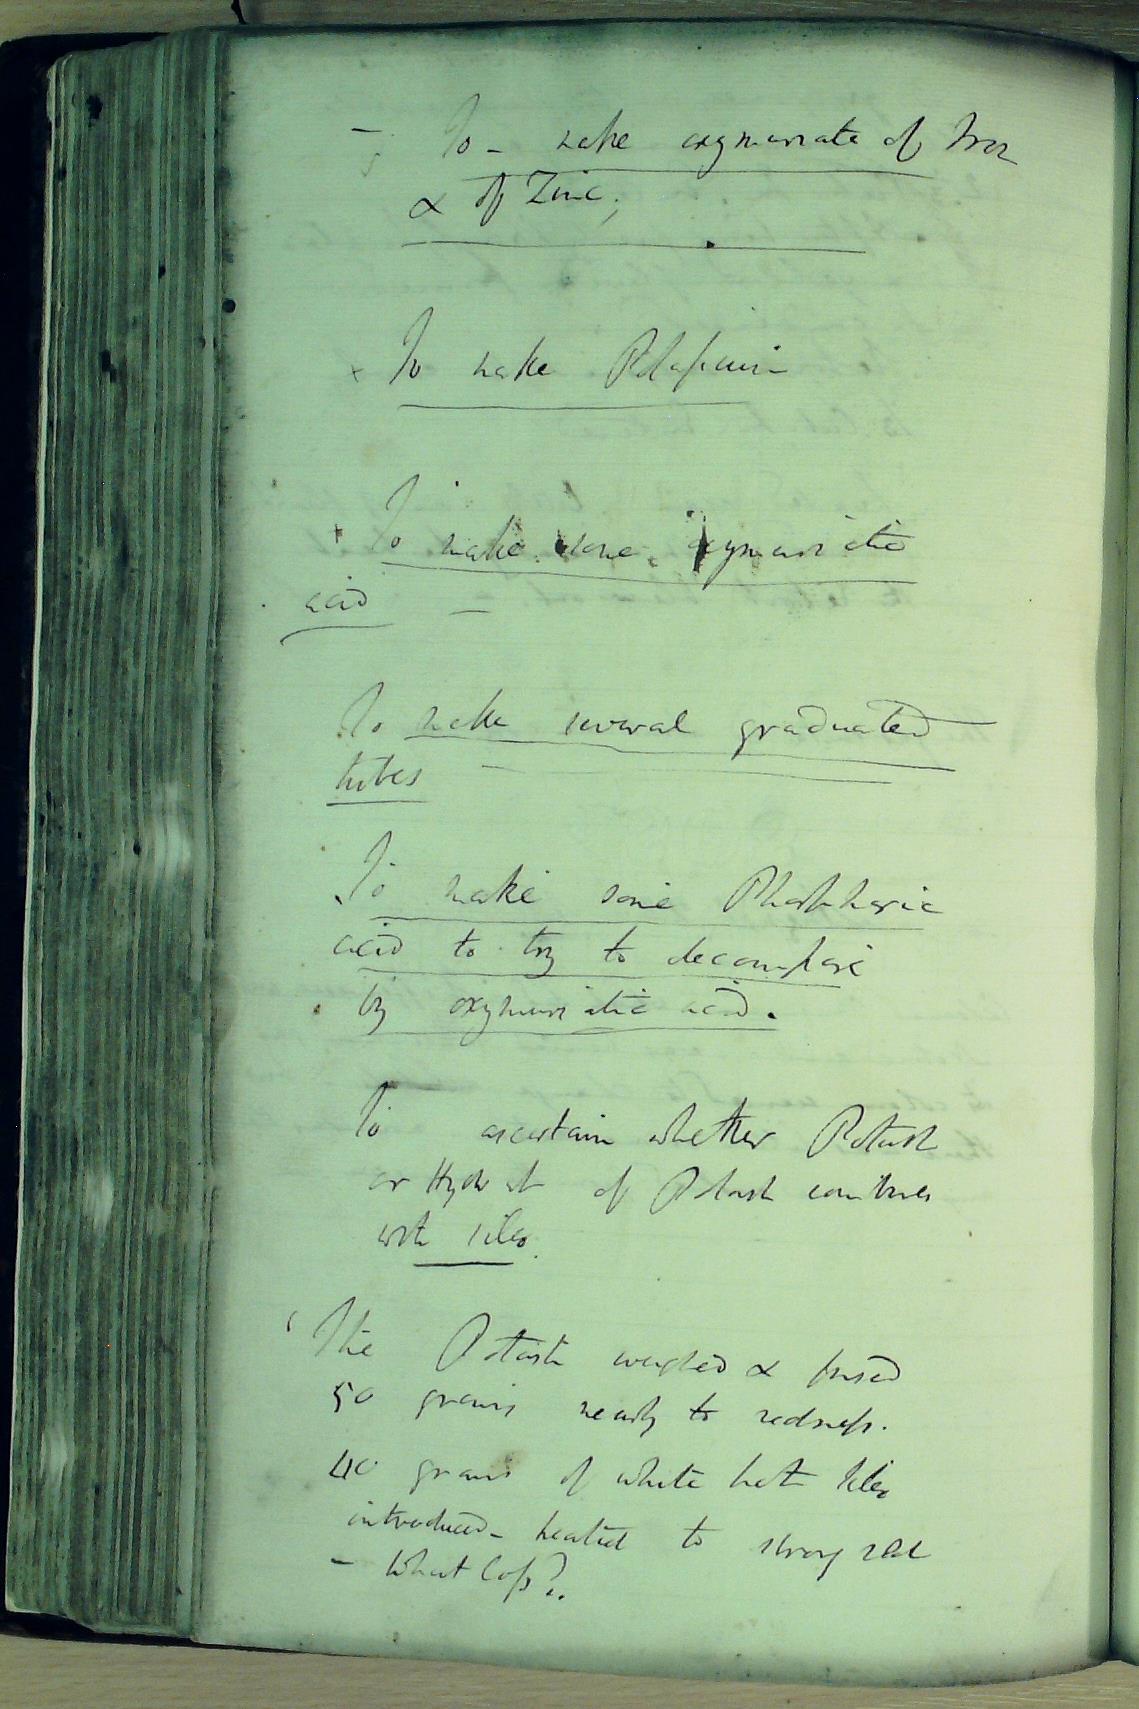 - To - make oxymuriate of Iron
& of Zinc,
x To make Potassium
+ To make some oxymuriatic
acid -
To make several graduated
tubes -
To make some Phosphoric
acid to try to decompose
by oxymuriatic acid.
To ascertain whether Potash
or Hydrat of Potash combines
with silex.
The Potash weighed & fused
50 grains nearly to redness.
40 grains of white hot silex
introduced - heated to strong red
- What loss?